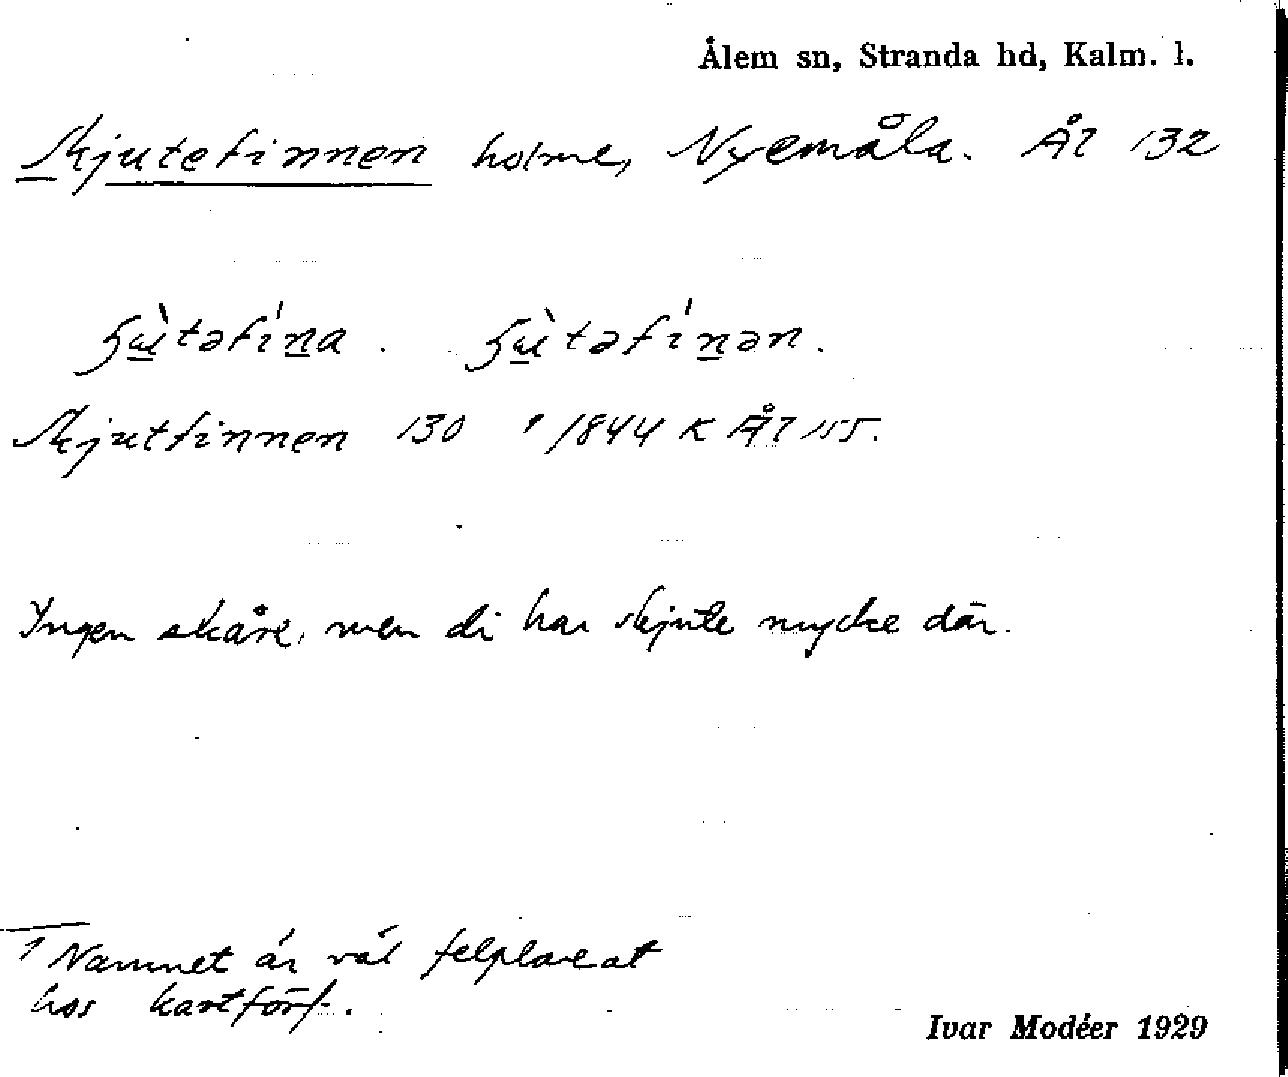 Ålem sn, Stranda hd, Kalm. l.
Skjutefinnen holme, Nyemåla. Ål 132
Skjutfinnen 130 ¹ /1844 K Ål 155.
Ingen skåre, men di har skjute mycke där.
¹ Namnet är väl felplaceat
hos kartförf.
Ivar Modéer 1929